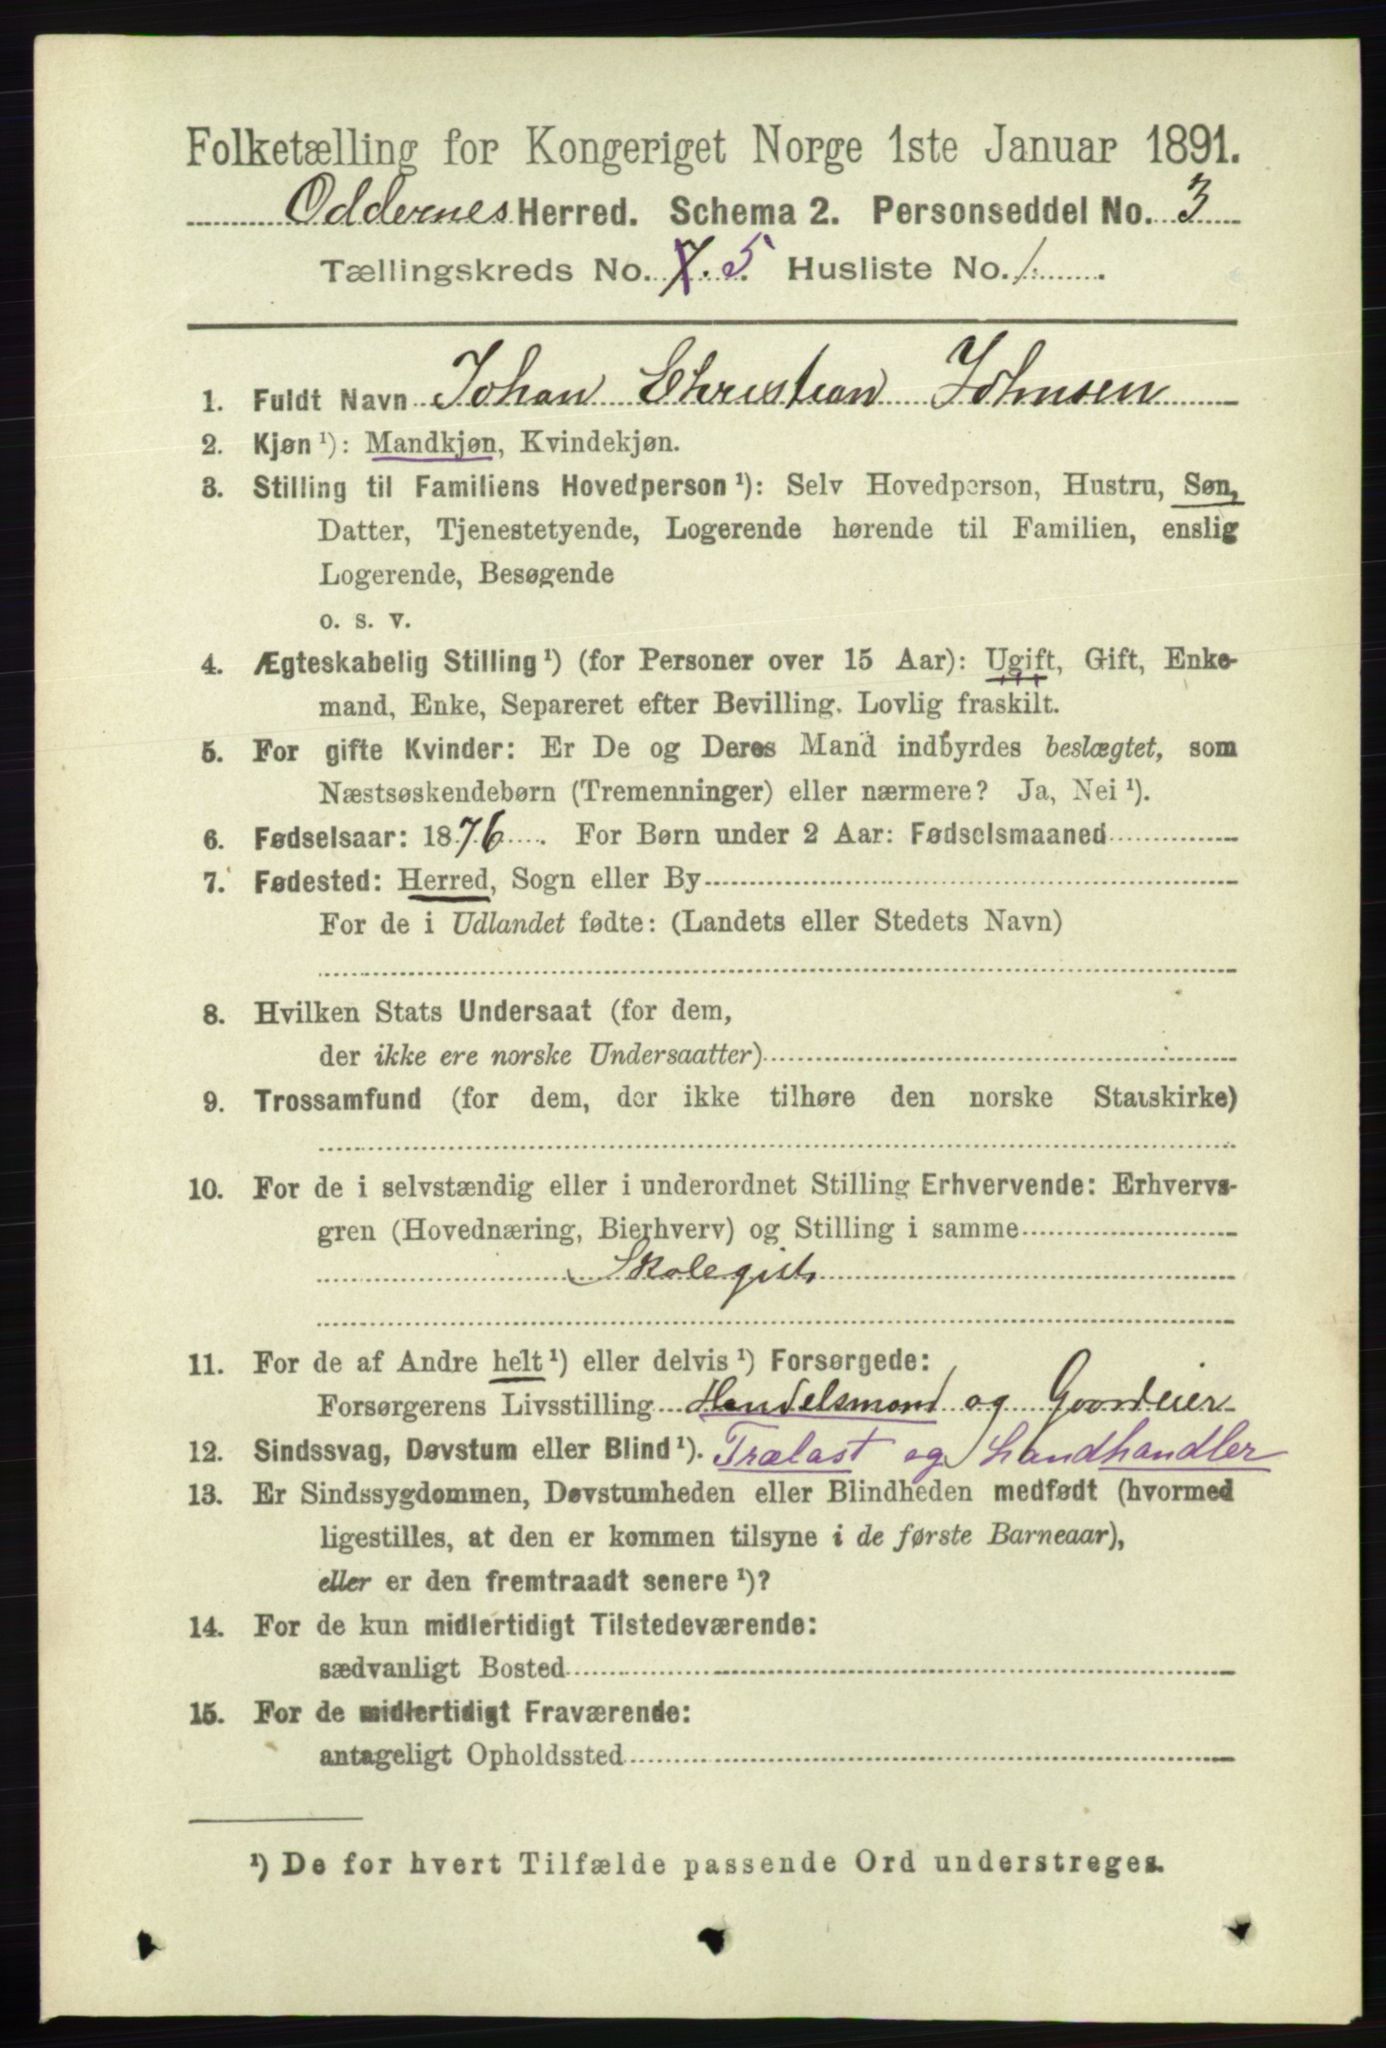 Folketælling for Kongeriget Norge 1ste Januar 1891.
Oddernes Herred. Schema 2. Personseddel No. 3
Tællingskreds No. 7. 5 Husliste No. 1.
1. Fuldt Navn Johan Christian Johnsen
2. Kjøn ¹): Mandkjøn, Kvindekjøn.
3. Stilling til Familiens Hovedperson ¹): Selv Hovedperson, Hustru, Søn,
Datter, Tjenestetyende, Logerende hørende til Familien, enslig
Logerende, Besøgende
o. s. v.
4. Ægteskabelig Stilling ¹) (for Personer over 15 Aar): Ugift, Gift, Enke-
mand, Enke, Separeret efter Bevilling. Lovlig fraskilt.
5. For gifte Kvinder: Er De og Deres Mand indbyrdes beslægtet, som
Næstsøskendebørn (Tremenninger) eller nærmere? Ja, Nei ¹).
6. Fødselsaar: 1876. For Børn under 2 Aar: Fødselsmaaned
7. Fødested: Herred, Sogn eller By
For de i Udlandet fødte: (Landets eller Stedets Navn)
8. Hvilken Stats Undersaat (for dem,
der ikke ere norske Undersaatter)
9. Trossamfund (for dem, der ikke tilhøre den norske Statskirke)
10. For de i selvstændig eller i underordnet Stilling Erhvervende: Erhvervs-
gren (Hovednæring, Bierhverv) og Stilling i samme
Skolegut
11. For de af Andre helt ¹) eller delvis ¹) Forsørgede:
Forsørgerens Livsstilling Handelsmand og Gaardeier
12. Sindssvag, Døvstum eller Blind ¹). Trælast og Landhandler
13. Er Sindssygdommen, Døvstumheden eller Blindheden medfødt (hvormed
ligestilles, at den er kommen tilsyne i de første Barneaar),
eller er den fremtraadt senere ¹)?
14. For de kun midlertidigt Tilstedeværende:
sædvanligt Bosted
15. For de midlertidigt Fraværende:
antageligt Opholdssted
¹) De for hvert Tilfælde passende Ord understreges.